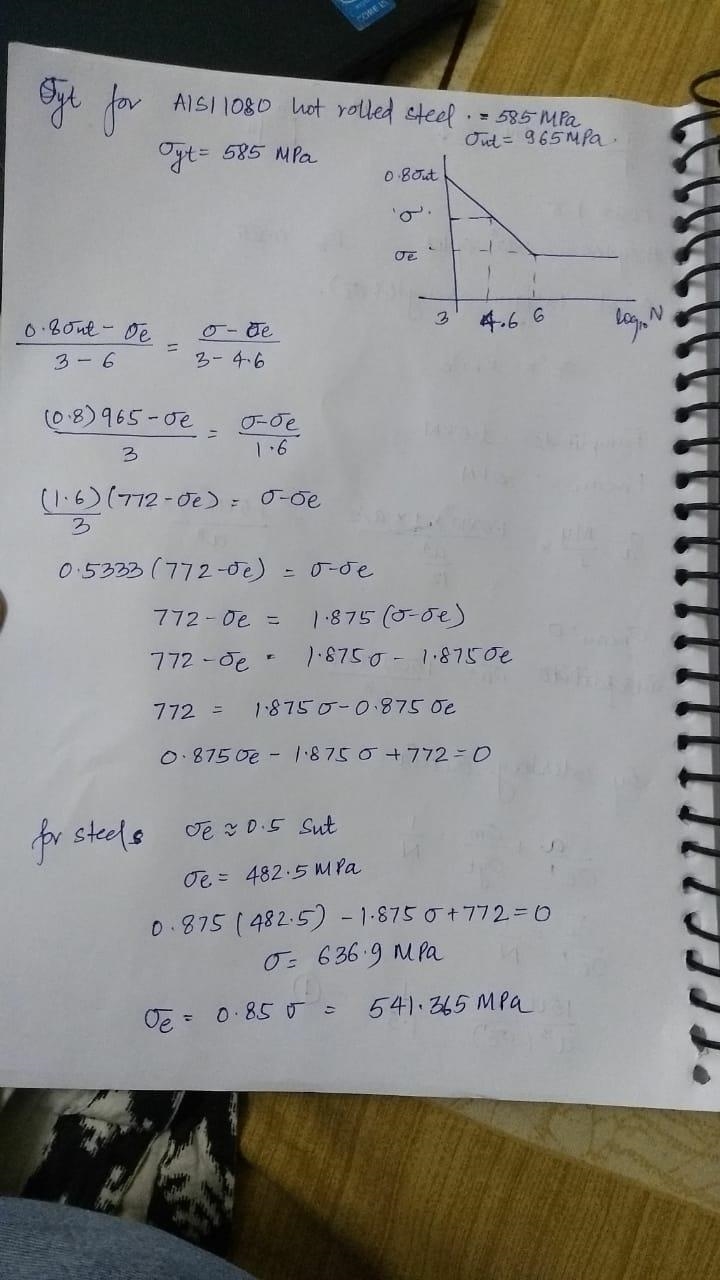 CORE i5
σyt for AISI 1080 hot rolled steel. = 585 MPa
σut = 965 MPa.
σyt = 585 MPa
0.8σut
'σ'.
σe
3 4.6 6 log₁₀N
(0.8σut - σe)/(3 - 6) = (σ - σe)/(3 - 4.6)
((0.8)965 - σe)/3 = (σ - σe)/1.6
(1.6)/3 (772 - σe) = σ - σe
0.5333 (772 - σe) = σ - σe
772 - σe = 1.875 (σ - σe)
772 - σe = 1.875σ - 1.875σe
772 = 1.875σ - 0.875σe
0.875σe - 1.875σ + 772 = 0
for steels σe ≈ 0.5 Sut
σe = 482.5 MPa
0.875 (482.5) - 1.875σ + 772 = 0
σ = 636.9 MPa
σe = 0.85 σ = 541.365 MPa